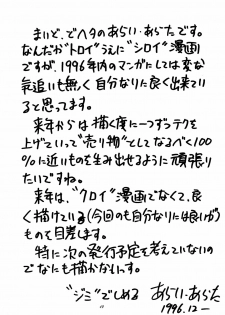 まいど、でヘタのあらい・あらたです。
なんだか"トロイ"うえに"シロイ"漫画
ですが、1996年内のマンガにしては変な
気追いも無く自分なりに良く出来てい
ると思ってます。
来年からは描く度に一つずつテクを
上げていって"売り物"としてなるべく100
%に近いものを生み出せるように頑張り
たいですね。
来年は、"クロイ"漫画でなくて、良
く描けている(今回のも自分なりには良いが)
ものを目差します。
特に次の発行予定を考えていないの
でなにも描かないっす。
"ジミ"でしめる あらい・あらた
1996.12-